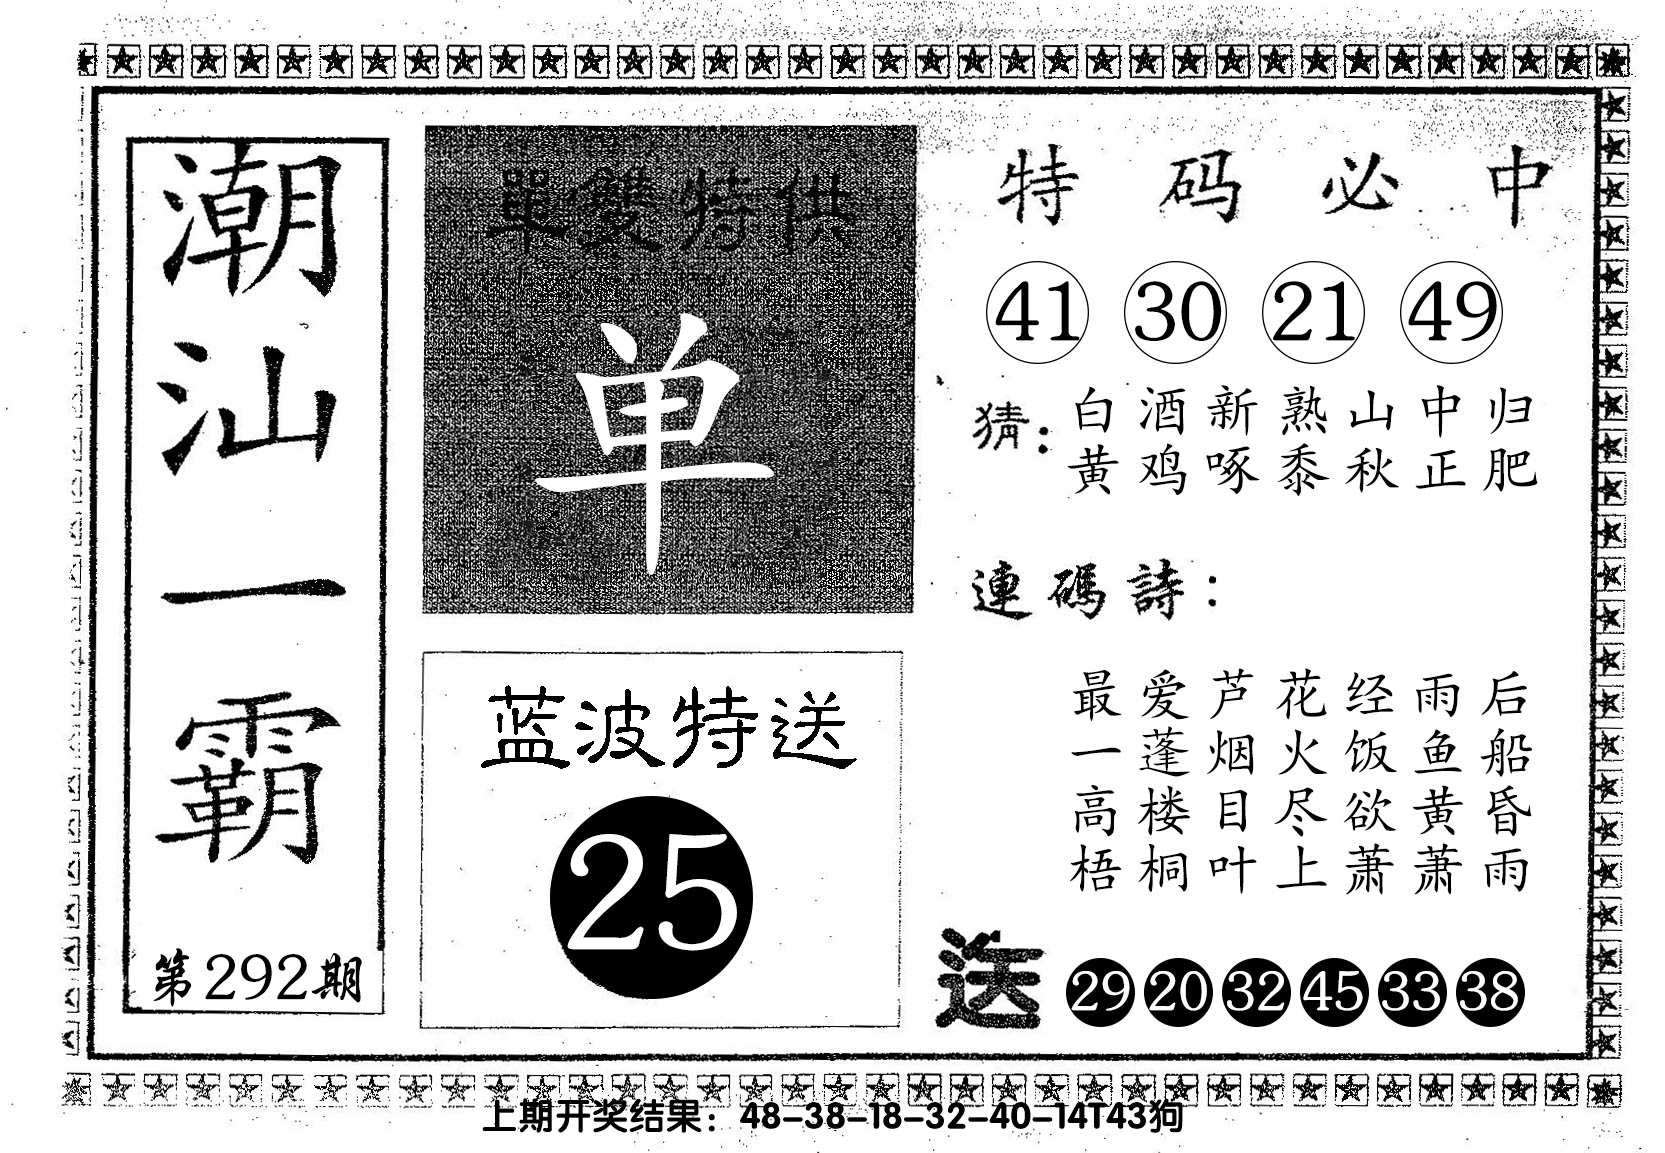 潮汕一霸
第292期
單雙特供
单
蓝波特送
25
特码必中
41 30 21 49
猜：
白酒新熟山中归
黄鸡啄黍秋正肥
連碼詩：
最爱芦花经雨后
一蓬烟火饭鱼船
高楼目尽欲黄昏
梧桐叶上萧萧雨
送 29 20 32 45 33 38
上期开奖结果：48-38-18-32-40-14T43狗